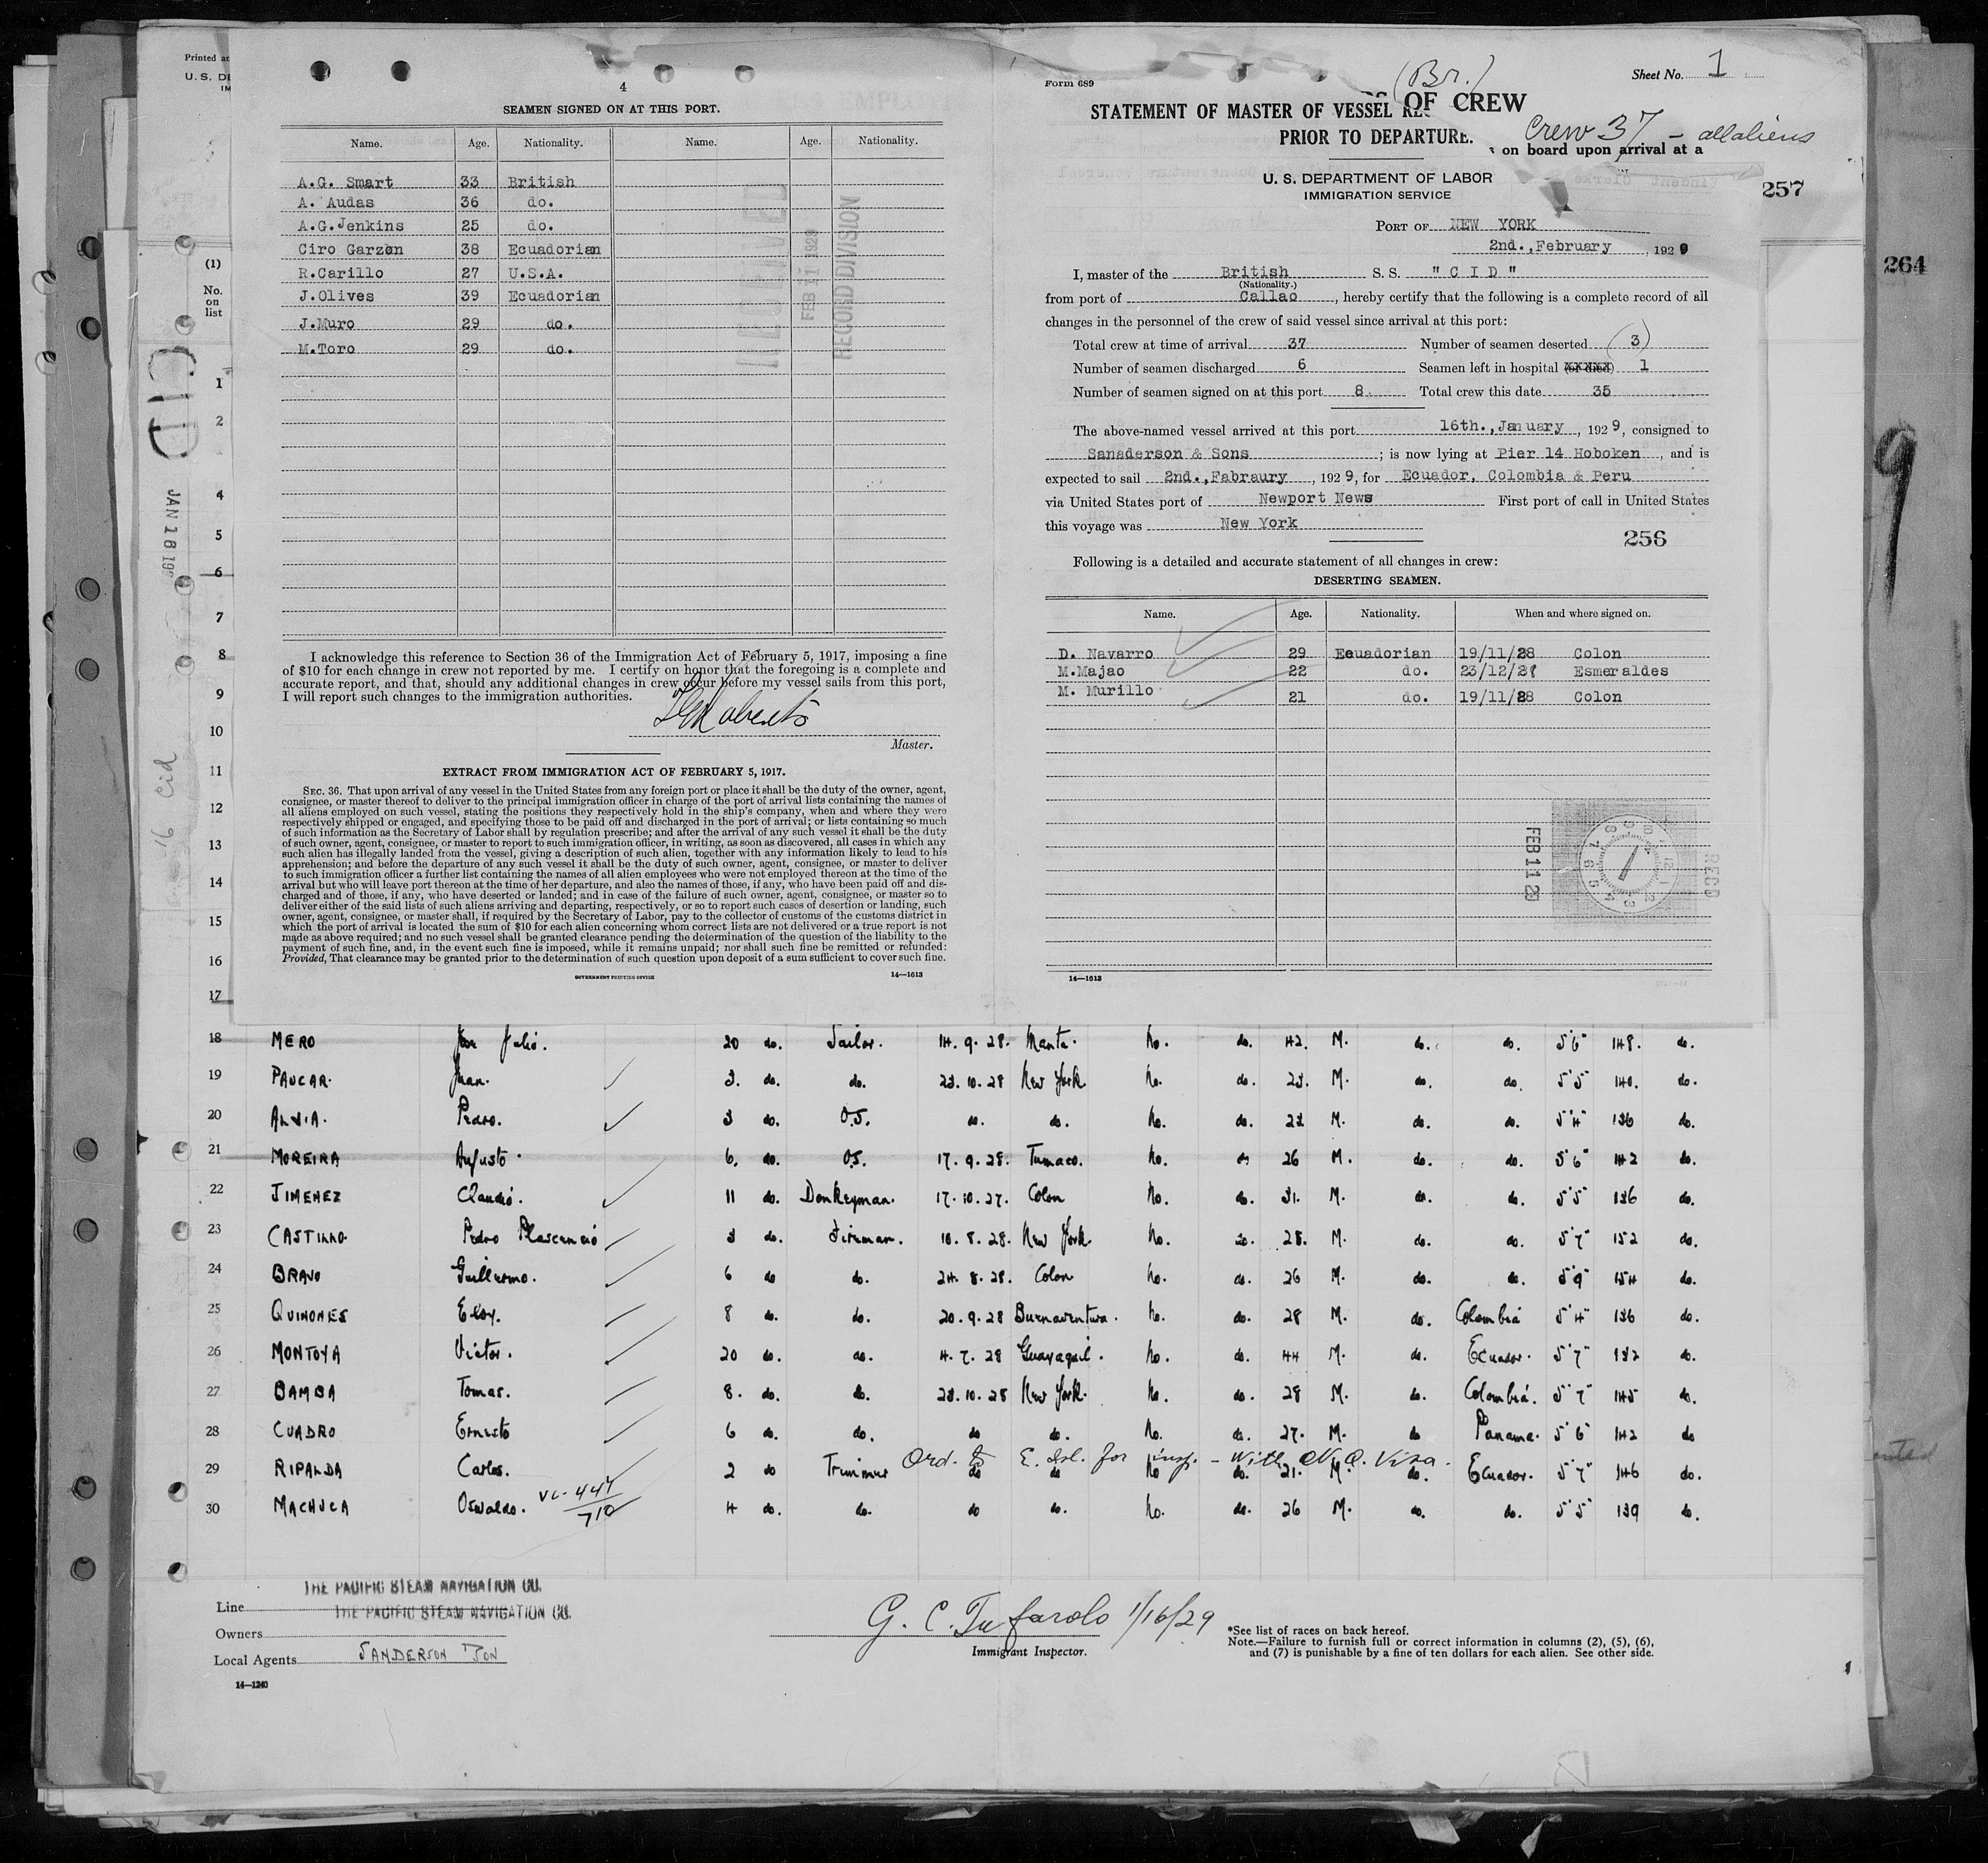 Printed
U. S.
4
SEAMEN SIGNED ON AT THIS PORT.
Name. Age. Nationality. Name. Age. Nationality.
A.G. Smart 33 British
A. Audas 36 do.
A.G.Jenkins 25 do.
Ciro Garzon 38 Ecuadorian
R.Carillo 27 U.S.A.
J.Olives 39 Ecuadorian
J.Muro 29 do.
M.Toro 29 do.
RECORD DIVISION
I acknowledge this reference to Section 36 of the Immigration Act of February 5, 1917, imposing a fine
of $10 for each change in crew not reported by me. I certify on honor that the foregoing is a complete and
accurate report, and that, should any additional changes in crew occur before my vessel sails from this port,
I will report such changes to the immigration authorities.
Master.
EXTRACT FROM IMMIGRATION ACT OF FEBRUARY 5, 1917.
SEC. 36. That upon arrival of any vessel in the United States from any foreign port or place it shall be the duty of the owner, agent,
consignee, or master thereof to deliver to the principal immigration officer in charge of the port of arrival lists containing the names of
all aliens employed on such vessel, stating the positions they respectively hold in the ship's company, when and where they were
respectively shipped or engaged, and specifying those to be paid off and discharged in the port of arrival; or lists containing so much
of such information as the Secretary of Labor shall by regulation prescribe; and after the arrival of any such vessel it shall be the duty
of such owner, agent, consignee, or master to report to such immigration officer, in writing, as soon as discovered, all cases in which any
such alien has illegally landed from the vessel, giving a description of such alien, together with any information likely to lead to his
apprehension; and before the departure of any such vessel it shall be the duty of such owner, agent, consignee, or master to deliver
to such immigration officer a further list containing the names of all alien employees who were not employed thereon at the time of the
arrival but who will leave port thereon at the time of her departure, and also the names of those, if any, who have been paid off and dis-
charged and of those, if any, who have deserted or landed; and in case of the failure of such owner, agent, consignee, or master so to
deliver either of the said lists of such aliens arriving and departing, respectively, or so to report such cases of desertion or landing, such
owner, agent, consignee, or master shall, if required by the Secretary of Labor, pay to the collector of customs of the customs district in
which the port of arrival is located the sum of $10 for each alien concerning whom correct lists are not delivered or a true report is not
made as above required; and no such vessel shall be granted clearance pending the determination of the question of the liability to the
payment of such fine, and, in the event such fine is imposed, while it remains unpaid; nor shall such fine be remitted or refunded:
Provided, That clearance may be granted prior to the determination of such question upon deposit of a sum sufficient to cover such fine.
GOVERNMENT PRINTING OFFICE 14—1613
Form 689 (Br.) Sheet No. 1
STATEMENT OF MASTER OF VESSEL OF CREW
PRIOR TO DEPARTURE. Crew 37 - all aliens
on board upon arrival at a
U. S. DEPARTMENT OF LABOR
IMMIGRATION SERVICE
257
264
PORT OF NEW YORK
2nd.,February, 1929
I, master of the British S. S. "C I D"
(Nationality.)
from port of Callao, hereby certify that the following is a complete record of all
changes in the personnel of the crew of said vessel since arrival at this port:
Total crew at time of arrival 37 Number of seamen deserted (3)
Number of seamen discharged 6 Seamen left in hospital (or died) 1
Number of seamen signed on at this port 8 Total crew this date 35
The above-named vessel arrived at this port 16th.,January, 1929, consigned to
Sanaderson & Sons; is now lying at Pier 14 Hoboken, and is
expected to sail 2nd.,Fabraury, 1929, for Ecuador, Colombia & Peru
via United States port of Newport News First port of call in United States
this voyage was New York
256
Following is a detailed and accurate statement of all changes in crew:
DESERTING SEAMEN.
Name. Age. Nationality. When and where signed on.
D. Navarro 29 Ecuadorian 19/11/28 Colon
M.Majao 22 do. 23/12/28 Esmeraldes
M. Murillo 21 do. 19/11/28 Colon
FEB 11 29
RECD
14—1613
(1)
No.
on
list
CID
Cid
1
2
4
5
6
7
8
9
10
11
12
13
14
15
16
17
18 MERO Julio. 20 do. Sailor. 14.9.28. Manta. No. do. 42. M. do. do. 5'6" 148. do.
19 PAUCAR. Juan. 3. do. do. 23.10.28 New York. No. do. 23. M. do. do. 5'5" 140. do.
20 ALVIA. Pedro. 3 do. O.S. do. do. No. do. 23 M. do. do. 5'4" 136 do.
21 MOREIRA Augusto. 6. do. O.S. 17.9.28. Tumaco. No. do 26 M. do. do. 5'6" 142 do.
22 JIMENEZ Claudio. 11 do. Donkeyman. 17.10.27. Colon No. do. 31. M. do. do. 5'5" 136 do.
23 CASTILLO. Pedro Plascencio 3 do. Fireman. 10.8.28. New York. No. do. 28. M. do. do. 5'7" 152 do.
24 BRAVO Guillermo. 6 do do. 24.8.28. Colon No. do. 26 M. do. do. 5'9" 154 do.
25 QUINONES Eloy. 8 do. do. 20.9.28 Buenaventura. No. do. 28 M. do. Colombia 5'4" 136 do.
26 MONTOYA Victor. 20 do. do. 4.7.28 Guayaquil. No. do. 44 M. do. Ecuador. 5'7" 132 do.
27 BAMBA Tomas. 8. do. do. 23.10.28 New York. No. do. 28 M. do. Colombia. 5'7" 145 do.
28 CUADRO Ernesto 6 do. do. do do. No. do. 27. M. do Panama. 5'6" 142 do
Ord. to E. Isl. for insp. - With No Visa.
29 RIPALDA Carlos. 2 do Trimmer do do No do. 21. M. do. Ecuador. 5'7" 146 do.
30 MACHUCA Oswaldo. 447/710 4 do. do. do do. No. do. 26 M. do. do. 5'5" 139 do.
THE PACIFIC STEAM NAVIGATION CO.
Line THE PACIFIC STEAM NAVIGATION CO.
Owners
Local Agents SANDERSON & SON
G. C. Tufarolo 1/16/29
Immigrant Inspector.
*See list of races on back hereof.
Note.—Failure to furnish full or correct information in columns (2), (5), (6),
and (7) is punishable by a fine of ten dollars for each alien. See other side.
14—1240